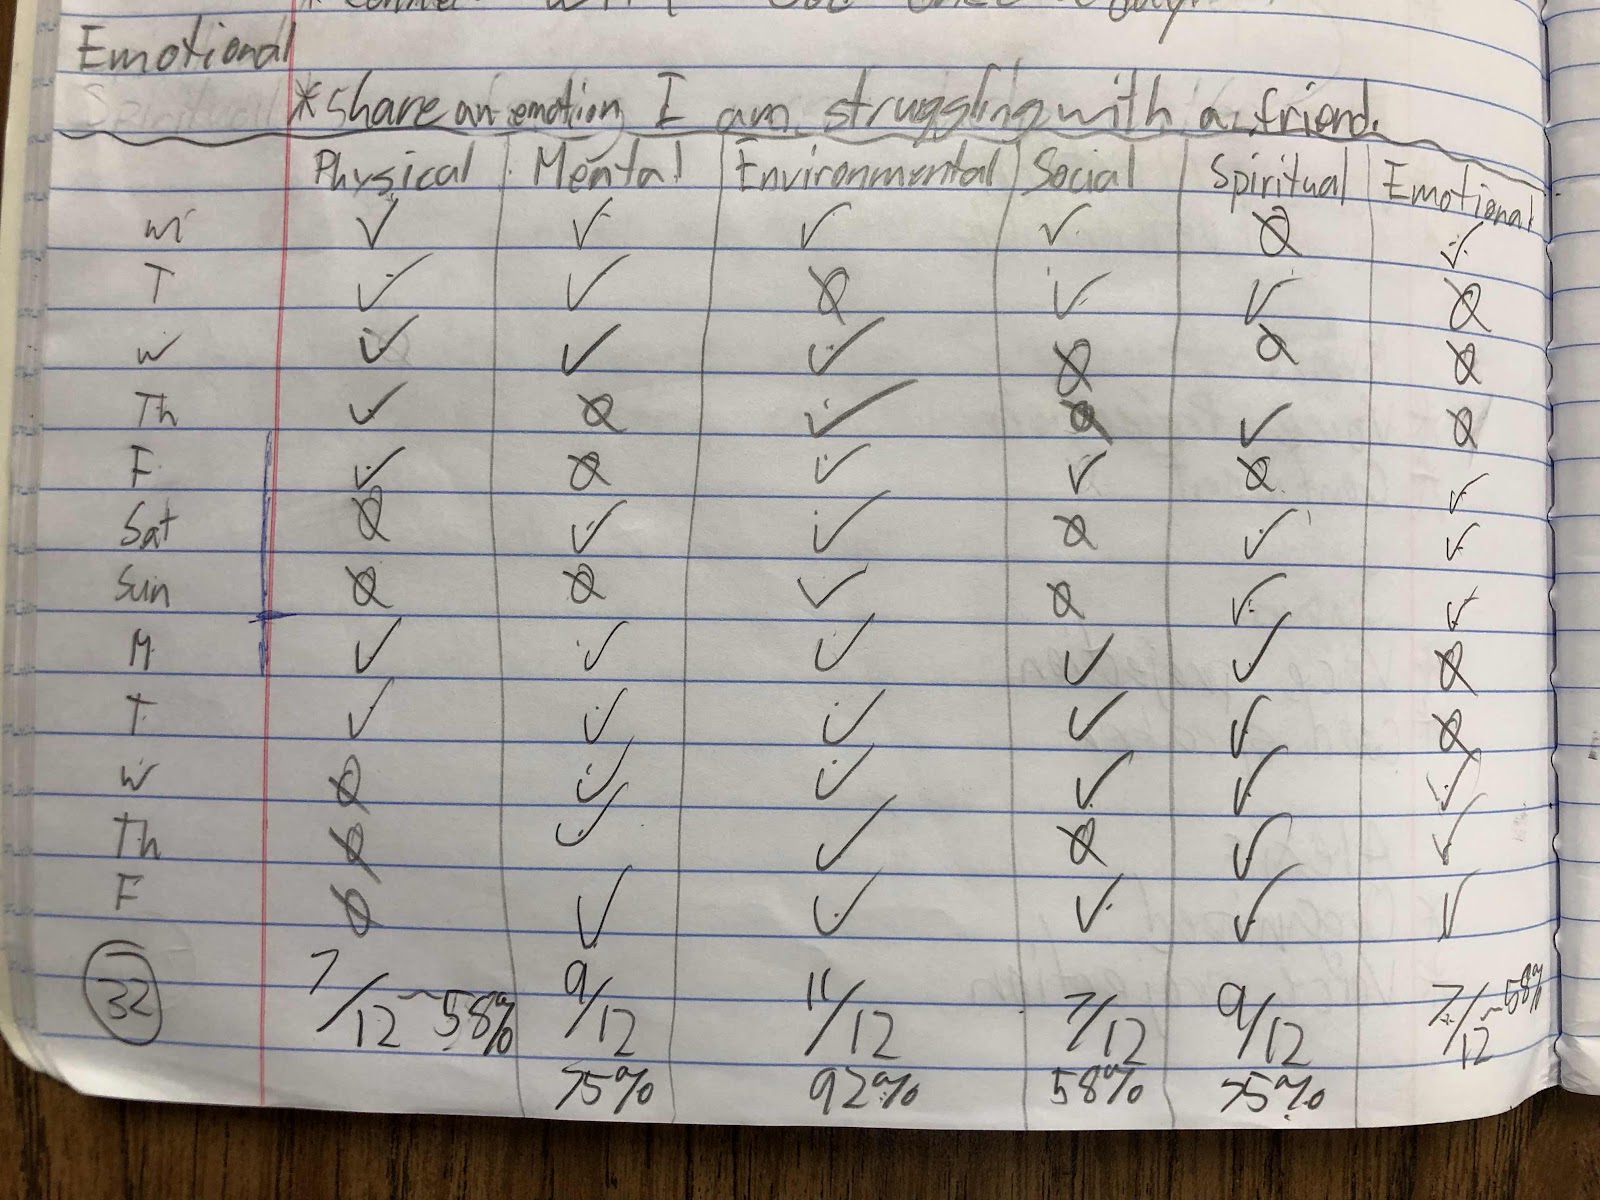 Emotional
*Share an emotion I am struggling with a friend.
Physical Mental Environmental Social Spiritual Emotional
M ✓ ✓ ✓ ✓ Ø ✓
T ✓ ✓ Ø ✓ ✓ Ø
W ✓ ✓ ✓ Ø Ø Ø
Th ✓ Ø ✓ Ø ✓ Ø
F ✓ Ø ✓ ✓ Ø ✓
Sat Ø ✓ ✓ Ø ✓ ✓
Sun Ø Ø ✓ Ø ✓ ✓
M ✓ ✓ ✓ ✓ ✓ Ø
T ✓ ✓ ✓ ✓ ✓ Ø
W Ø ✓ ✓ ✓ ✓ ✓
Th Ø ✓ ✓ Ø ✓ ✓
F Ø ✓ ✓ ✓ ✓ ✓
32 7/12 ~58% 9/12 11/12 7/12 9/12 7/12 ~58%
75% 92% 58% 75%